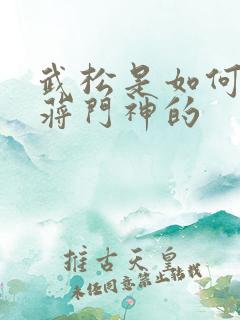 武松是如何
蒋门神的
推古天皇
未经同意禁止转载